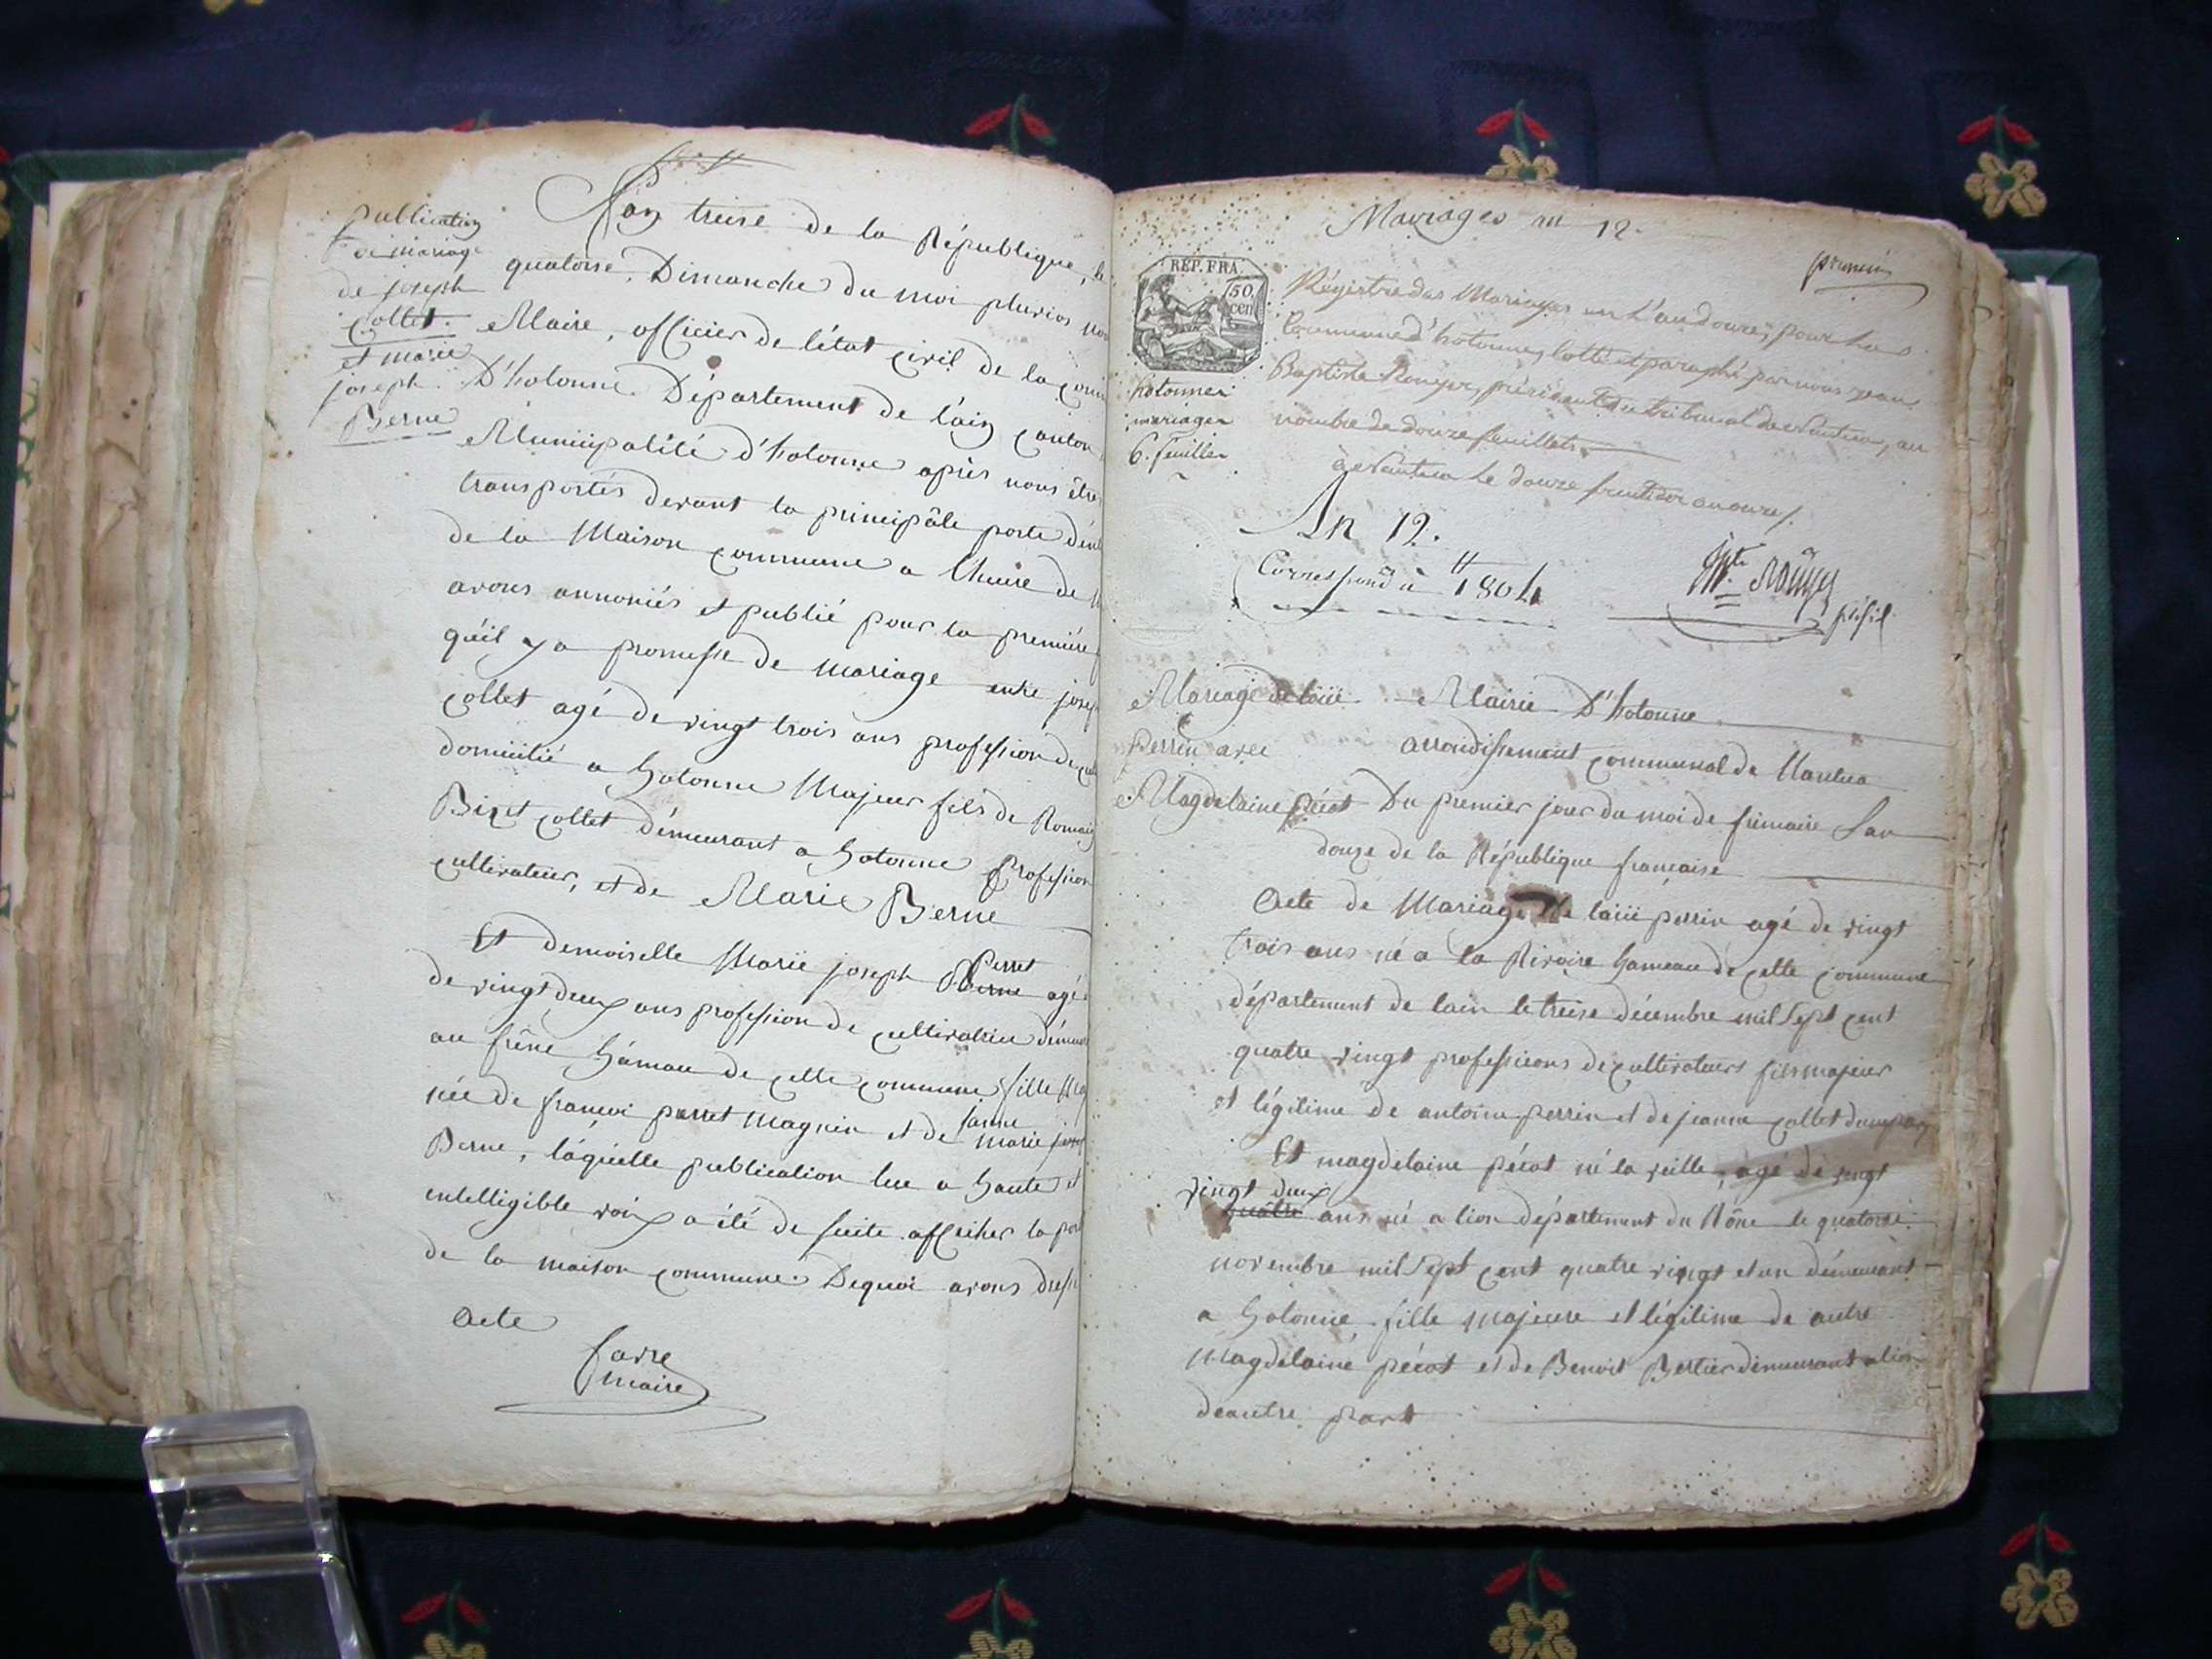 publication
de mariage
de joseph
Collet.
et marie
joseph
Berne
L'an treise de la République, le
quatorse, Dimanche du moi pluvios nou
Maire, officier de l'état civil de la com
D'hotonne Département de l'ain canton
Municipalité d'hotonne après nous être
transportés devant la principâle porte d'en
de la Maison commune a l'heure de
avons annonciés et publié pour la première
qu'éil y a promesse de mariage entre josep
Collet agé de vingt trois ans profession de cul
domicilié a hotonne Majeur fils de Romain
Bizet Collet démeurant a hotonne profession
cultivateur, et de Marie Berne
Et demoiselle Marie joseph Perret Berne agé
de vingt deux ans profession de cultivatrice démeur
au frêne hámau de cette commune fille
née de francoi perret magnin et de janne marie
Berne, láquelle publication lue a haute et
intelligible voix a été de suite afficher la por
de la maison commune. Dequoi avons dress
acte
Carre
maire
Mariages an 12.
premier
REP. FRA.
50 cen
hotonne
mariages
6. feuilles
Régistre des Mariages en l'an douze, pour la
Commune d'hotonne, cotté et paraphé par nous jean
Baptiste Rouyer, président du tribunal de Nantua, au
nombre de douze feuillets.
à Nantua le douze fructidor an onze.
An 12.
Correspond à 1804
Rouyer
présid.
Mariage de laiii
perrin avec
Magdelaine pécot
Mairie D'hotonne
arrondissement communal de Nantua
Du premier jour du moi de frimaire l'an
douze de la République francaise
Acte de Mariage de laiii perrin agé de vingt
trois ans né a la Rivoire hameau de cette commune
département de lain le treise décembre mil sept cent
quatre vingt professions de cultivateurs fils majeur
et légitime de antoine perrin et de jeanne collet dunepart
Et magdelaine pécot né la veille, agé de vingt
vingt deux
quatre ans né a lion département du Rône le quatorse
novembre mil sept cent quatre vingt et un démeurant
a hotonne fille majeure et légitime de autre
Magdelaine pécot et de Benoit Bertier démeurant a lion
deautre part